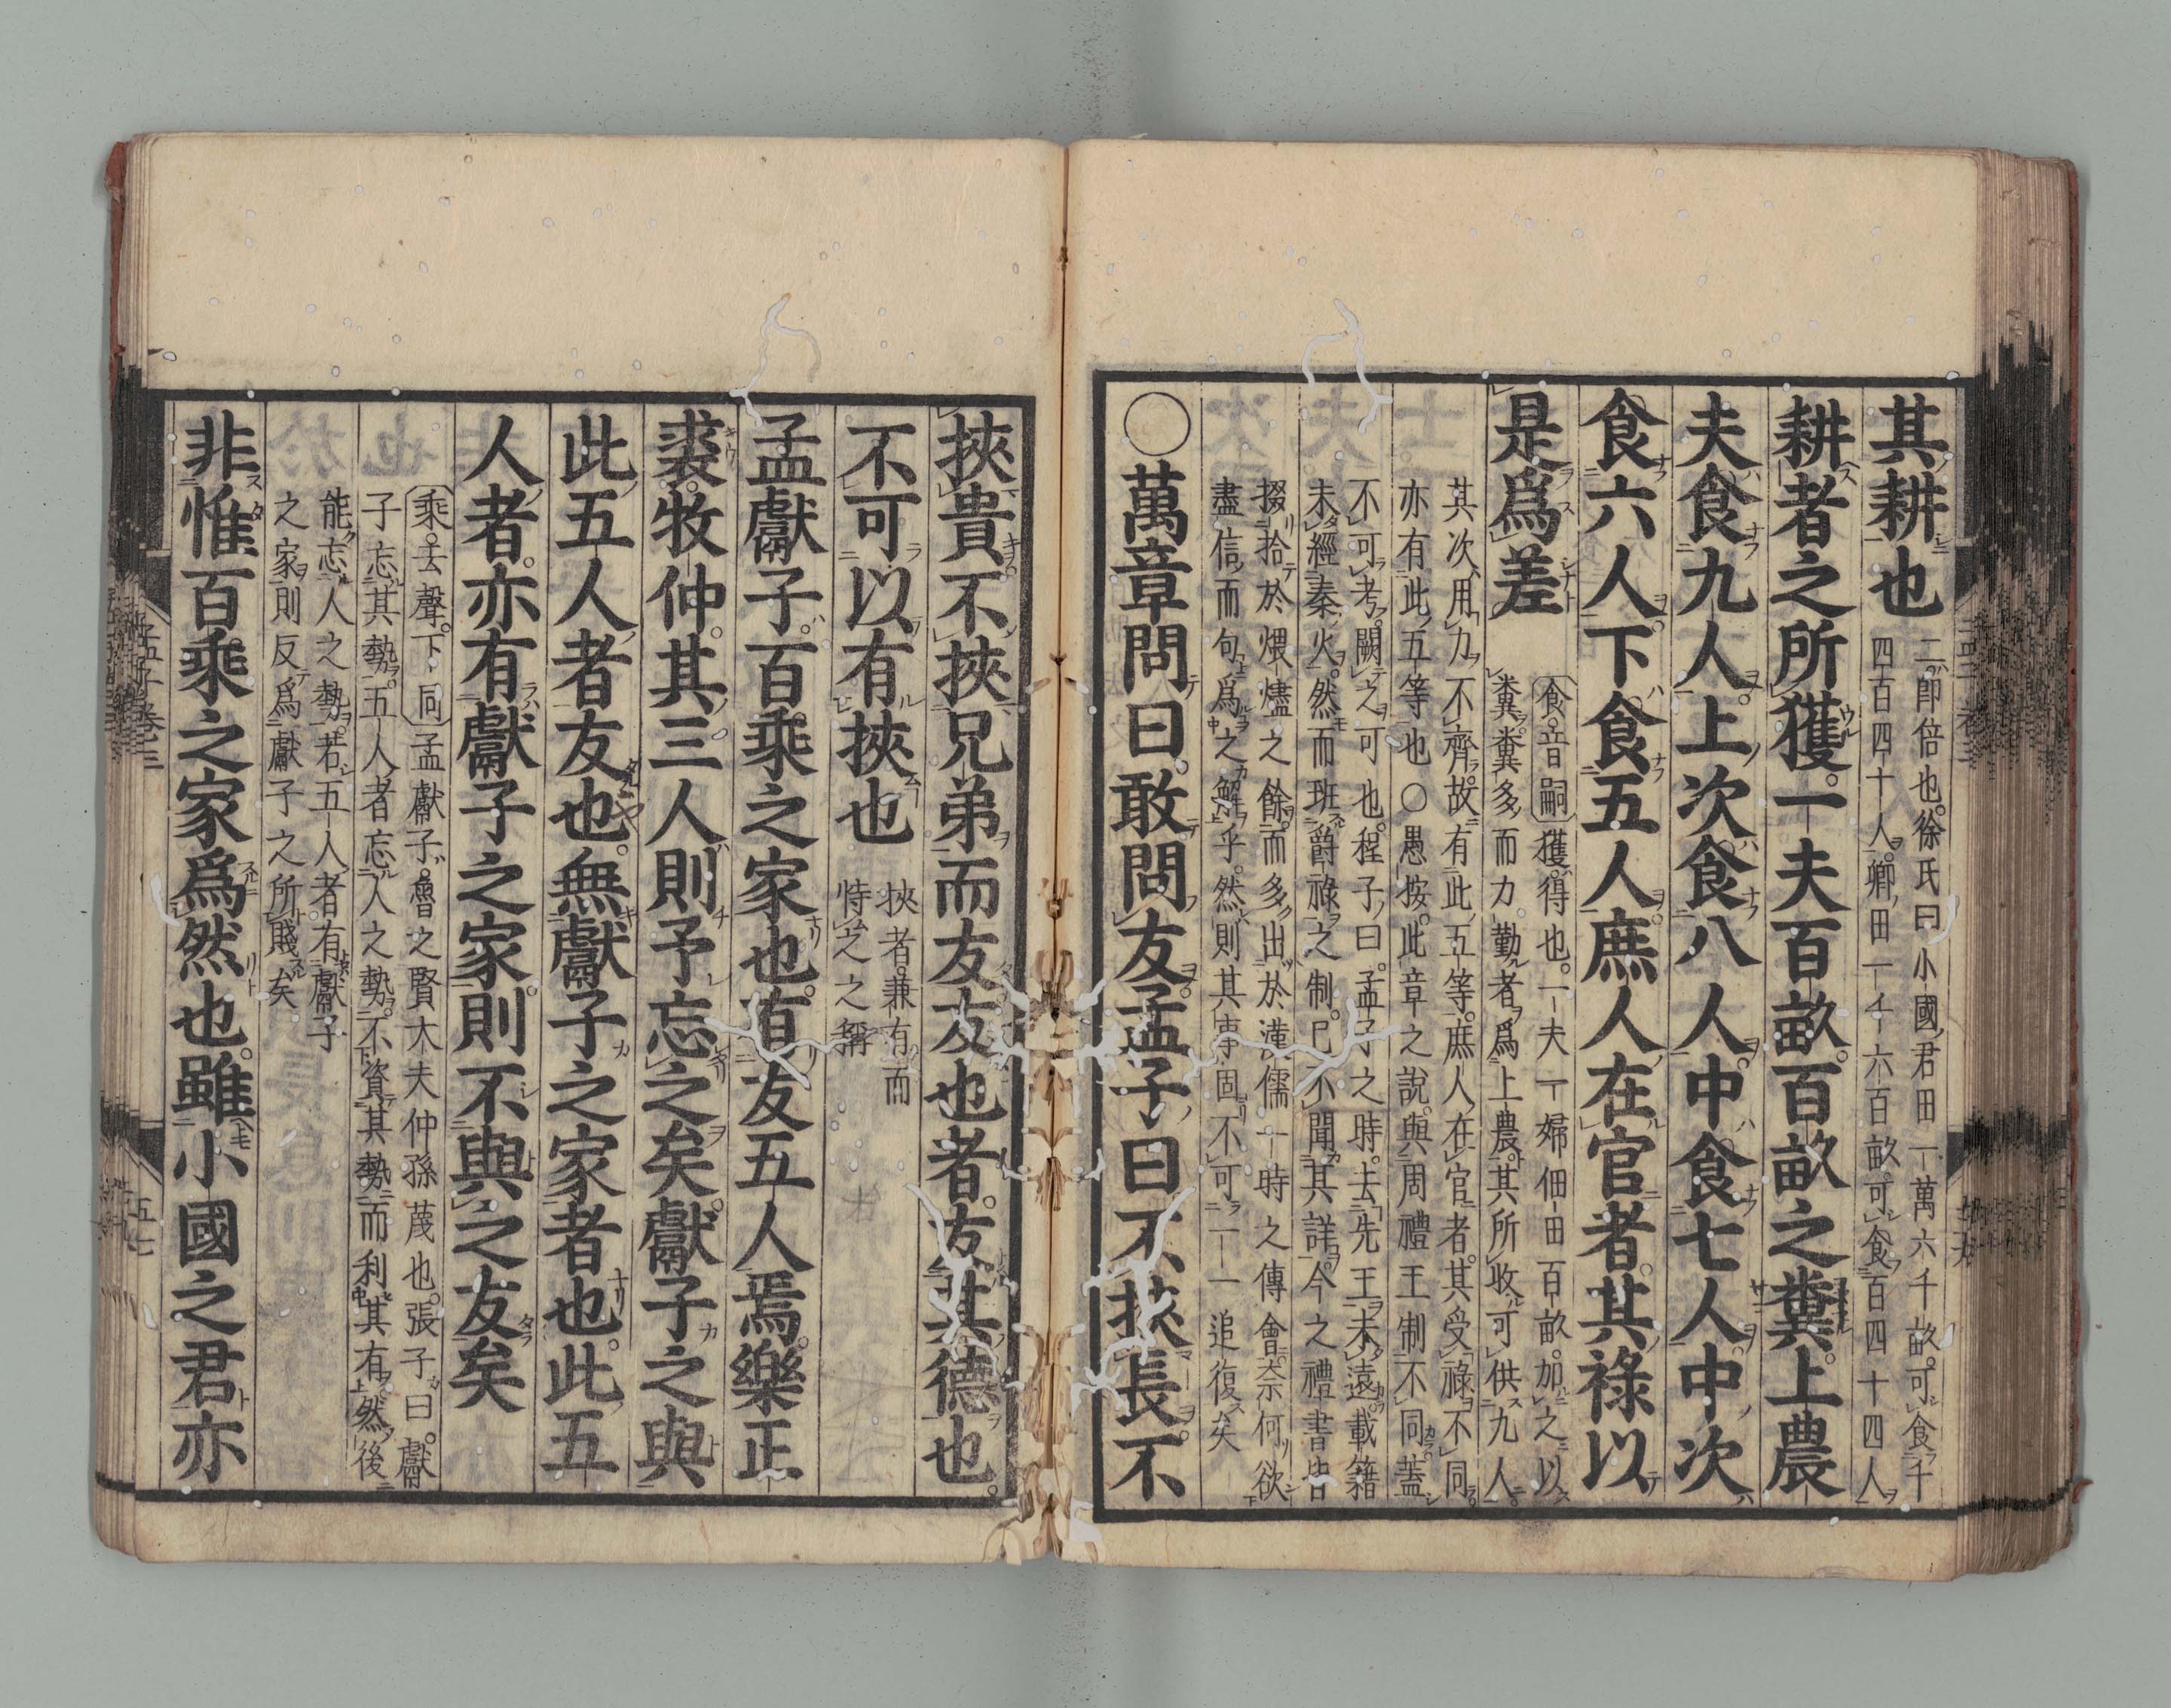 其耕也
二即倍也。徐氏曰小國君田一萬六千畝。可食千
四百四十人。卿田一千六百畝。可食百四十四人
耕者之所獲。一夫百畝。百畝之糞。上農
夫食九人。上次食八人。中食七人。中次
食六人。下食五人。庶人在官者。其祿以
是爲差
食音嗣 獲。得也。一夫一婦佃田百畝。加之以
糞。糞多而力勤者爲上農。其所收可供九人。
其次用力不齊。故有此五等。庶人在官者。其受祿不同。
亦有此五等也○愚按。此章之說。與周禮王制不同。蓋
不可考。闕之可也。程子曰。孟子之時。去先王未遠。載籍
未經秦火。然而班爵祿之制。已不聞其詳。今之禮書皆
掇拾於煨燼之餘。而多出於漢儒一時之傳會。奈何欲
盡信而句爲之解乎。然則其事固不可一一追復矣
○萬章問曰。敢問友。孟子曰不挾長。不
挾貴。不挾兄弟而友。友也者。友其德也。
不可以有挾也
挾者。兼有而
恃之之稱
孟獻子。百乘之家也。有友五人焉。樂正
裘。牧仲。其三人則予忘之矣。獻子之與
此五人者友也。無獻子之家者也。此五
人者。亦有獻子之家。則不與之友矣
乘。去聲。下同 孟獻子。魯之賢大夫仲孫蔑也。張子曰。獻
子忘其勢。五人者忘人之勢。不資其勢而利其有。然後
能忘人之勢。若五人者。有獻子
之家則反爲獻子之所賤矣
非惟百乘之家爲然也。雖小國之君亦